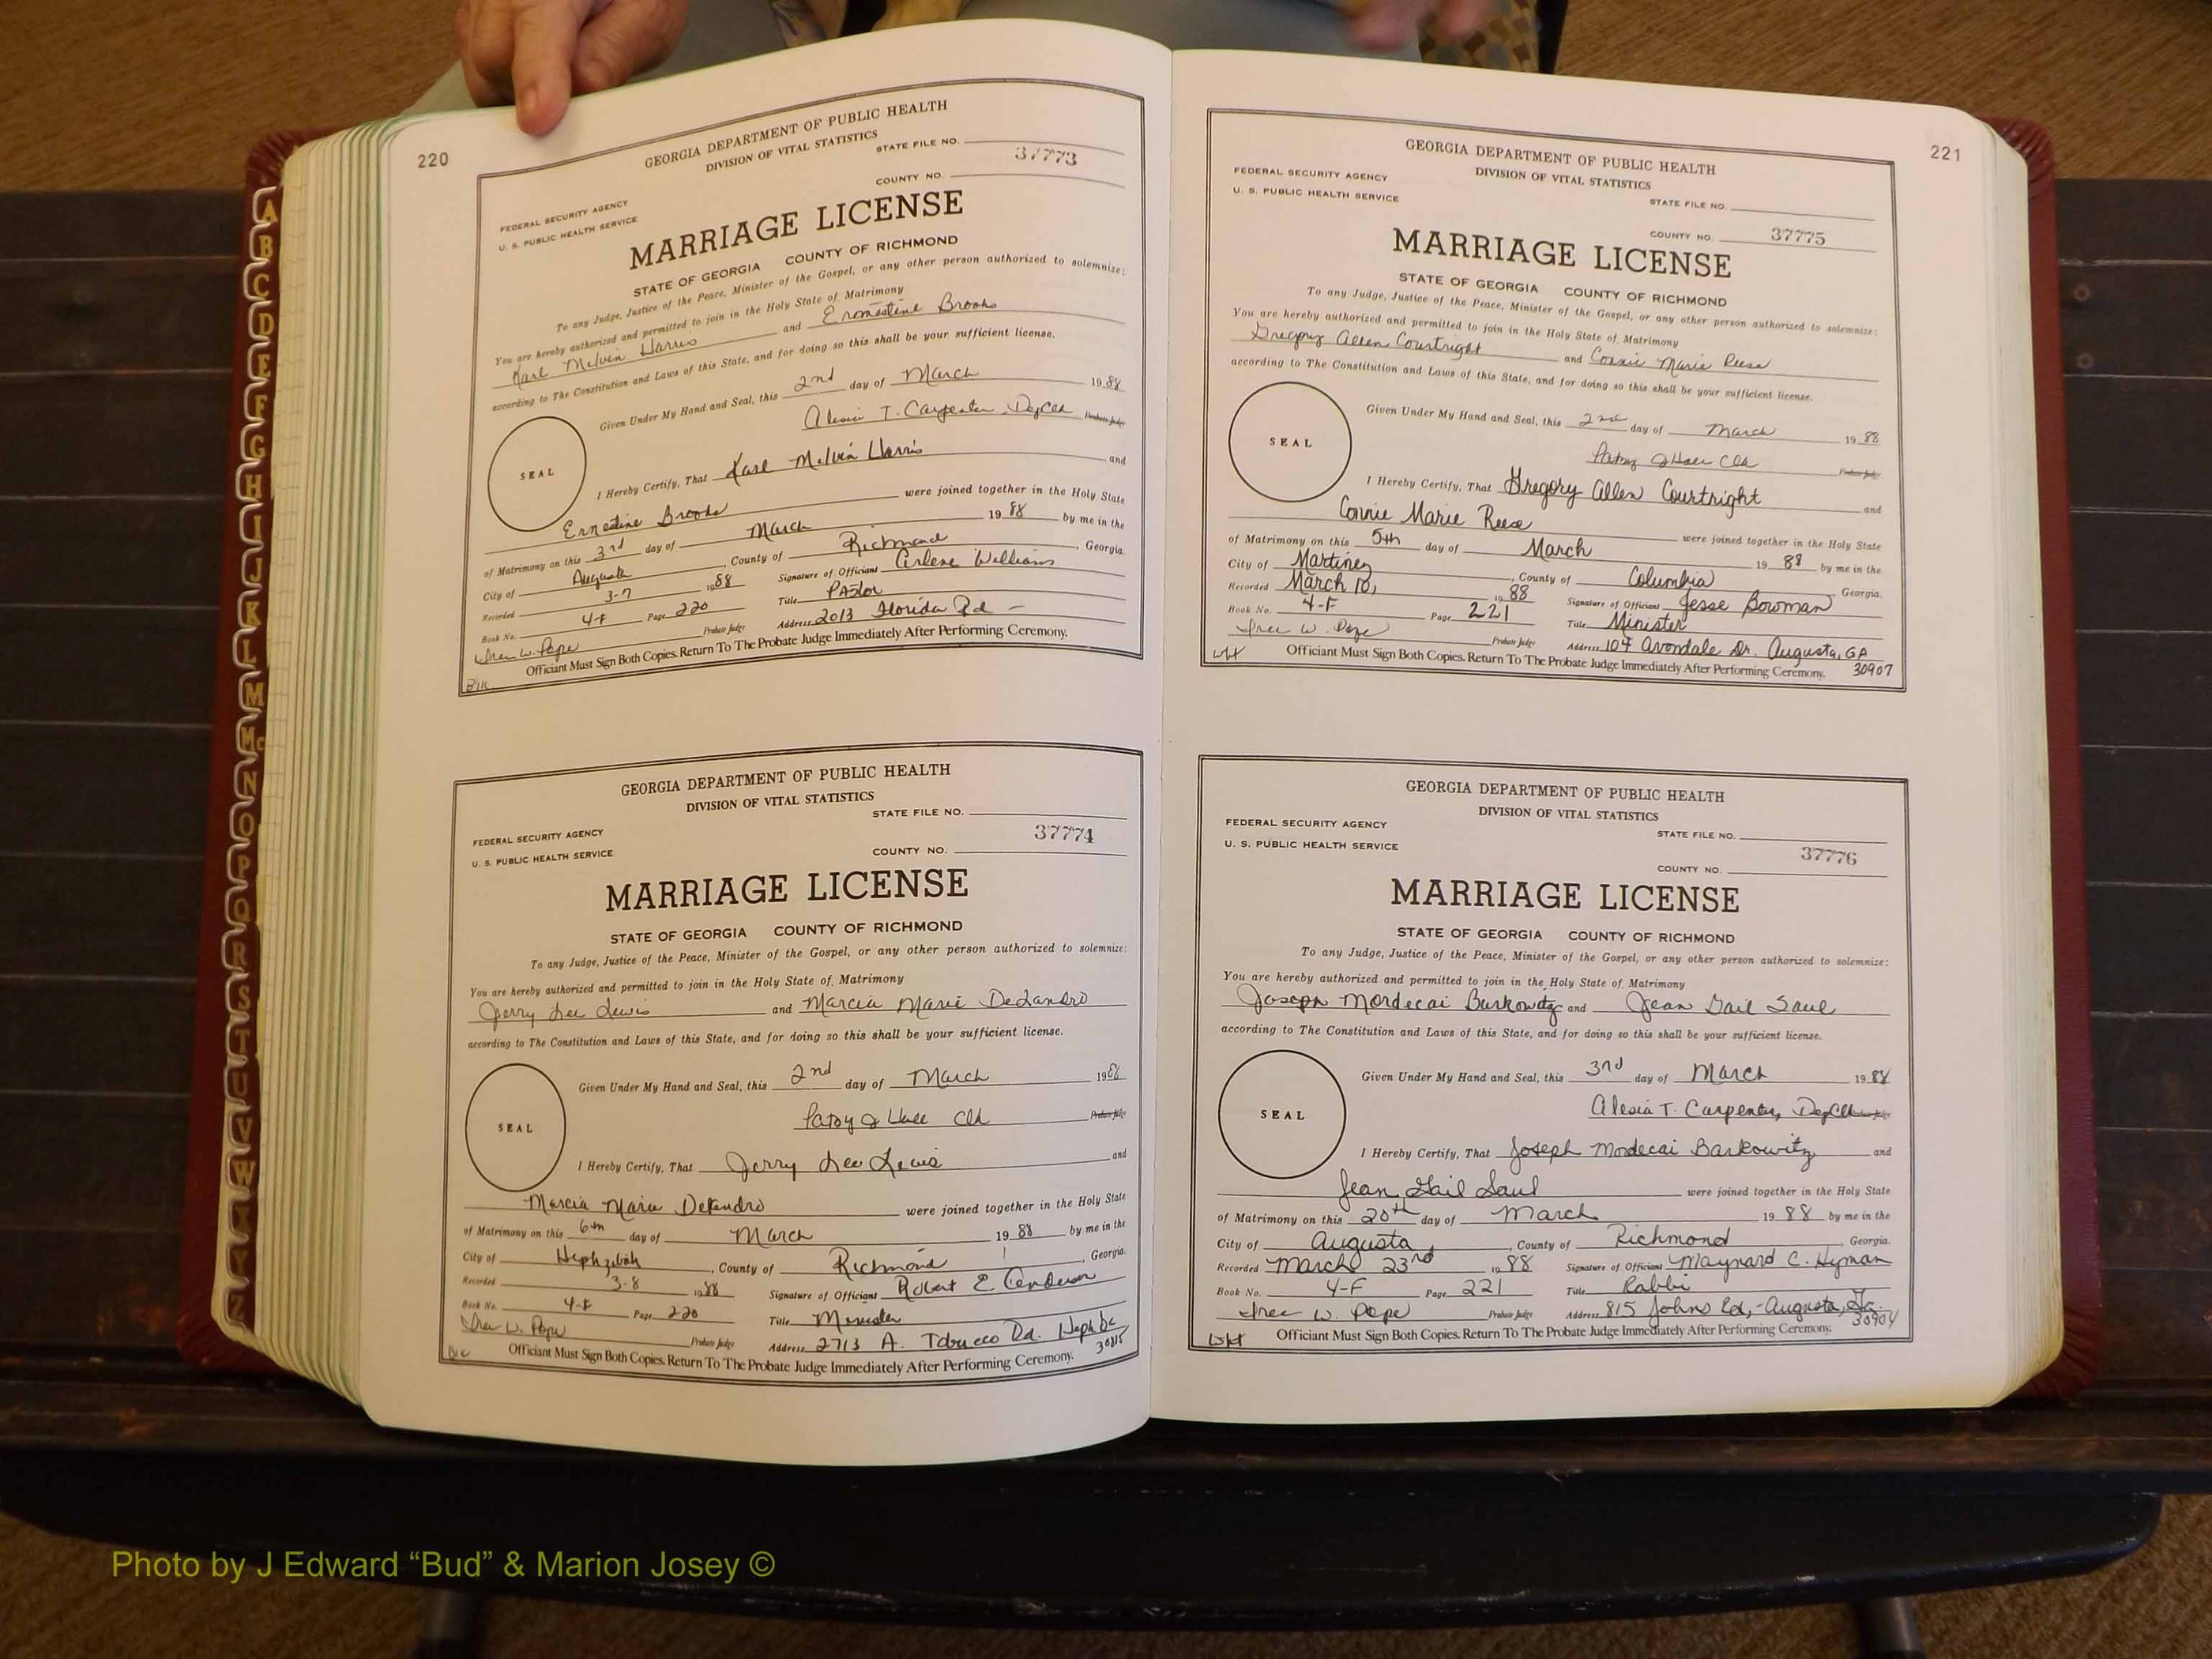 220
GEORGIA DEPARTMENT OF PUBLIC HEALTH
DIVISION OF VITAL STATISTICS
STATE FILE NO. 37773
COUNTY NO.
FEDERAL SECURITY AGENCY
U. S. PUBLIC HEALTH SERVICE
MARRIAGE LICENSE
STATE OF GEORGIA COUNTY OF RICHMOND
To any Judge, Justice of the Peace, Minister of the Gospel, or any other person authorized to solemnize:
You are hereby authorized and permitted to join in the Holy State of Matrimony
Karl Melvin Harris and Ernestine Brooks
according to The Constitution and Laws of this State, and for doing so this shall be your sufficient license.
Given Under My Hand and Seal, this 2nd day of March 1988
Alesia T. Carpenter DepClk Probate Judge
SEAL
I Hereby Certify, That Karl Melvin Harris and
Ernestine Brooks were joined together in the Holy State
of Matrimony on this 3rd day of March 1988 by me in the
City of Augusta, County of Richmond, Georgia.
Recorded 3-7 1988 Signature of Officiant Arlene Williams
Book No. 4-F Page 220 Title Pastor
W. Pope Probate Judge Address 2013 Florida Rd -
Officiant Must Sign Both Copies. Return To The Probate Judge Immediately After Performing Ceremony.
GEORGIA DEPARTMENT OF PUBLIC HEALTH
DIVISION OF VITAL STATISTICS
STATE FILE NO.
37774
FEDERAL SECURITY AGENCY
U. S. PUBLIC HEALTH SERVICE
COUNTY NO.
MARRIAGE LICENSE
STATE OF GEORGIA COUNTY OF RICHMOND
To any Judge, Justice of the Peace, Minister of the Gospel, or any other person authorized to solemnize:
You are hereby authorized and permitted to join in the Holy State of Matrimony
Jerry Lee Lewis and Marcia Marie DeLandro
according to The Constitution and Laws of this State, and for doing so this shall be your sufficient license.
Given Under My Hand and Seal, this 2nd day of March 1988
Patsy J Hall Clk Probate Judge
SEAL
I Hereby Certify, That Jerry Lee Lewis and
Marcia Marie DeLandro were joined together in the Holy State
of Matrimony on this 6th day of March 1988 by me in the
City of Hephzibah, County of Richmond, Georgia.
Recorded 3-8 1988 Signature of Officiant Robert E.
Book No. 4-F Page 220 Title Minister
W. Pope Probate Judge Address 2713 A. Tobacco Rd. Heph
30815
Officiant Must Sign Both Copies. Return To The Probate Judge Immediately After Performing Ceremony.
221
GEORGIA DEPARTMENT OF PUBLIC HEALTH
DIVISION OF VITAL STATISTICS
FEDERAL SECURITY AGENCY
U. S. PUBLIC HEALTH SERVICE
STATE FILE NO.
COUNTY NO. 37775
MARRIAGE LICENSE
STATE OF GEORGIA COUNTY OF RICHMOND
To any Judge, Justice of the Peace, Minister of the Gospel, or any other person authorized to solemnize:
You are hereby authorized and permitted to join in the Holy State of Matrimony
Gregory Allen Courtright and Connie Marie Reese
according to The Constitution and Laws of this State, and for doing so this shall be your sufficient license.
Given Under My Hand and Seal, this 2nd day of March 1988
Patsy J Hall Clk Probate Judge
SEAL
I Hereby Certify, That Gregory Allen Courtright and
Connie Marie Reese were joined together in the Holy State
of Matrimony on this 5th day of March 1988 by me in the
City of Martinez, County of Columbia Georgia.
Recorded March 10, 1988 Signature of Officiant Jesse Bowman
Book No. 4-F Page 221 Title Minister
W. Pope Probate Judge Address 104 Avondale Dr. Augusta, GA
30907
Officiant Must Sign Both Copies. Return To The Probate Judge Immediately After Performing Ceremony.
GEORGIA DEPARTMENT OF PUBLIC HEALTH
DIVISION OF VITAL STATISTICS
FEDERAL SECURITY AGENCY
U. S. PUBLIC HEALTH SERVICE
STATE FILE NO.
37776
COUNTY NO.
MARRIAGE LICENSE
STATE OF GEORGIA COUNTY OF RICHMOND
To any Judge, Justice of the Peace, Minister of the Gospel, or any other person authorized to solemnize:
You are hereby authorized and permitted to join in the Holy State of Matrimony
Joseph Mordecai Barkowitz and Jean Gail Saul
according to The Constitution and Laws of this State, and for doing so this shall be your sufficient license.
Given Under My Hand and Seal, this 3rd day of March 1988
Alesia T. Carpenter, DepClk
SEAL
I Hereby Certify, That Joseph Mordecai Barkowitz and
Jean Gail Saul were joined together in the Holy State
of Matrimony on this 20th day of March 1988 by me in the
City of Augusta, County of Richmond Georgia.
Recorded March 23rd 1988 Signature of Officiant Maynard C. Hyman
Book No. 4-F Page 221 Title Rabbi
W. Pope Probate Judge Address 815 Johns Rd, - Augusta, Ga.
30904
Officiant Must Sign Both Copies. Return To The Probate Judge Immediately After Performing Ceremony.
A
B
C
D
E
F
G
H
I
J
K
L
M
Mc
N
O
P
Q
R
S
T
U
V
W
X
Y
Z
Photo by J Edward “Bud” & Marion Josey ©